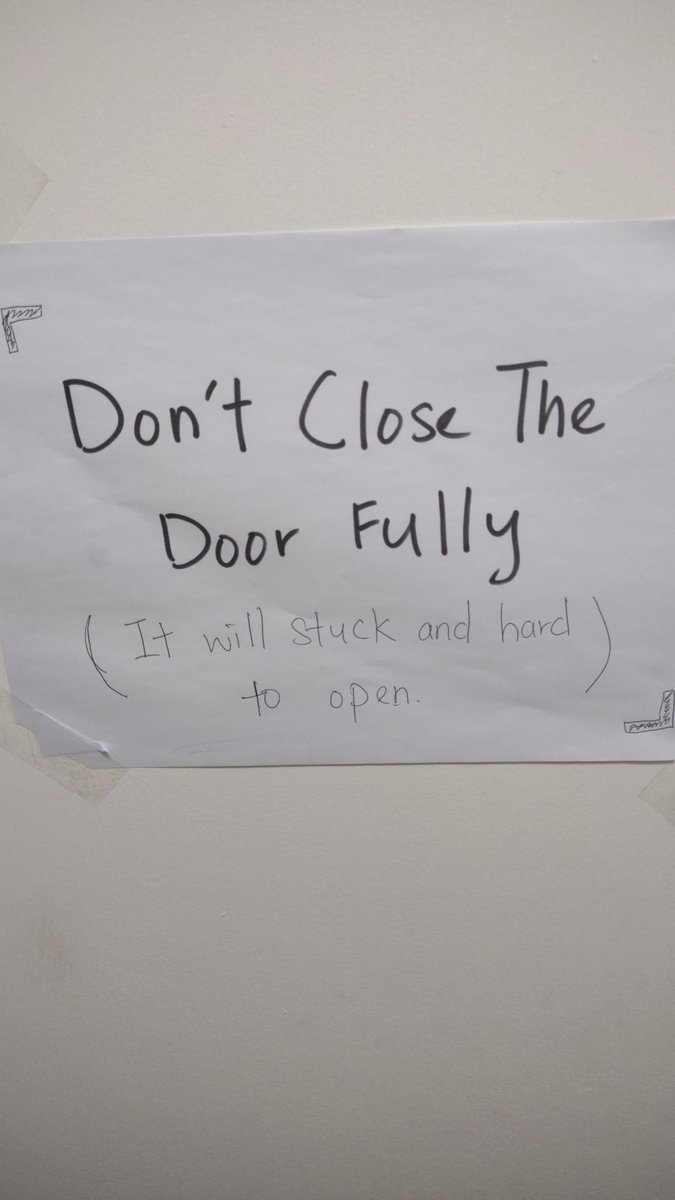 Don't Close The
Door Fully
( It will stuck and hard )
to open.